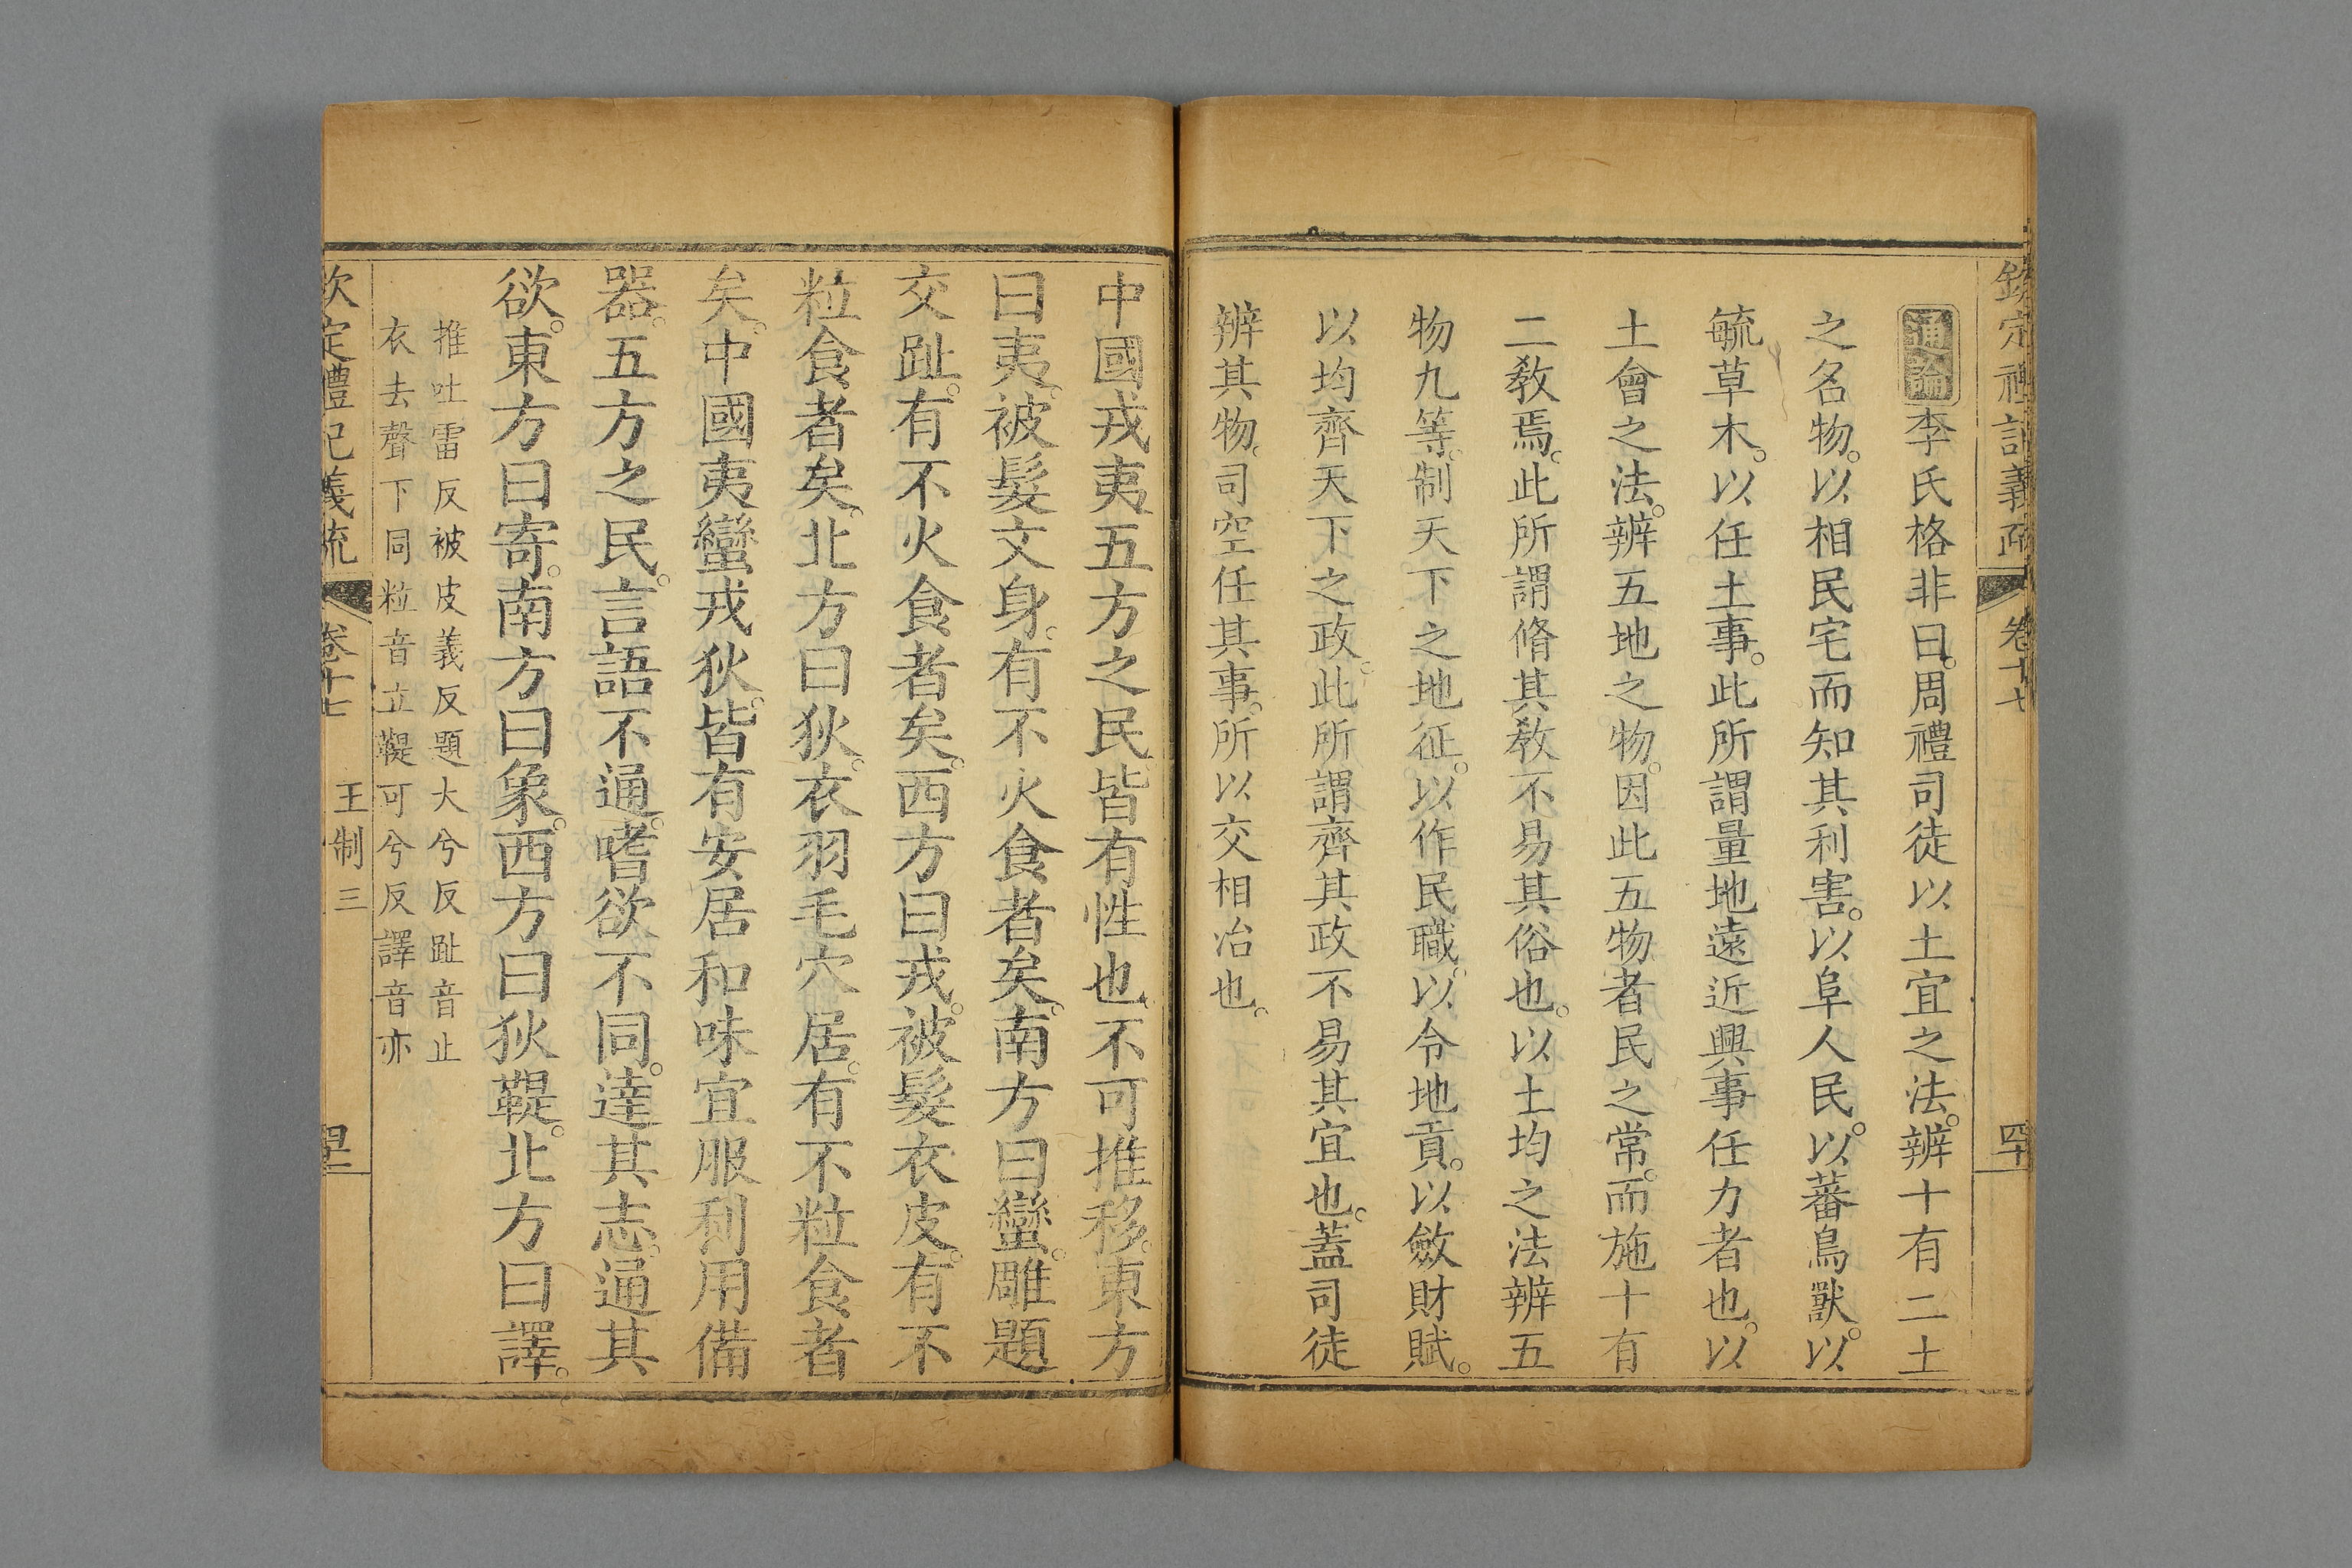 欽定禮記義疏 卷十七 四十
通論李氏格非曰。周禮司徒以土宜之法。辨十有二土
之名物。以相民宅而知其利害。以阜人民。以蕃鳥獸。以
毓草木。以任土事。此所謂量地遠近興事任力者也。以
土會之法。辨五地之物。因此五物者民之常。而施十有
二敎焉。此所謂脩其敎不易其俗也。以土均之法辨五
物九等。制天下之地征。以作民職。以令地貢。以斂財賦。
以均齊天下之政。此所謂齊其政不易其宜也。蓋司徒
辨其物。司空任其事。所以交相治也。
中國戎夷五方之民。皆有性也。不可推移。東方
曰夷。被髮文身。有不火食者矣。南方曰蠻。雕題
交趾。有不火食者矣。西方曰戎。被髮衣皮。有不
粒食者矣。北方曰狄。衣羽毛穴居。有不粒食者
矣。中國夷蠻戎狄。皆有安居和味宜服利用備
器。五方之民。言語不通。嗜欲不同。達其志。通其
欲。東方曰寄。南方曰象。西方曰狄鞮。北方曰譯。
推吐雷反被皮義反題大兮反趾音止
衣去聲下同粒音立鞮可兮反譯音亦
欽定禮記義疏 卷十七 王制三